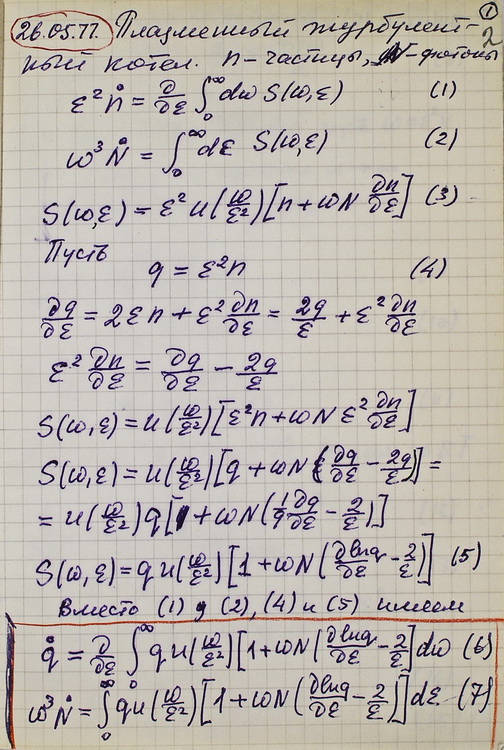 ①
2
26.05.77. Плазменный турбулент-
ный котел. n-частицы, N-фотоны
ε² ṅ = ∂/∂ε ∫₀^∞ dω S(ω,ε) (1)
ω³ Ṅ = ∫₀^∞ dε S(ω,ε) (2)
S(ω,ε) = ε² u(ω/ε²)[n + ωN ∂n/∂ε] (3)
Пусть
q = ε²n (4)
∂q/∂ε = 2εn + ε² ∂n/∂ε = 2q/ε + ε² ∂n/∂ε
ε² ∂n/∂ε = ∂q/∂ε − 2q/ε
S(ω,ε) = u(ω/ε²)[ε²n + ωN ε² ∂n/∂ε]
S(ω,ε) = u(ω/ε²)[q + ωN(∂q/∂ε − 2q/ε)] =
= u(ω/ε²) q[1 + ωN(1/q ∂q/∂ε − 2/ε)]
S(ω,ε) = q u(ω/ε²)[1 + ωN(∂lnq/∂ε − 2/ε)] (5)
Вместо (1) и (2), (4) и (5) имеем
q̇ = ∂/∂ε ∫₀^∞ q u(ω/ε²)[1 + ωN(∂lnq/∂ε − 2/ε)] dω (6)
ω³Ṅ = ∫₀^∞ q u(ω/ε²)[1 + ωN(∂lnq/∂ε − 2/ε)] dε. (7)